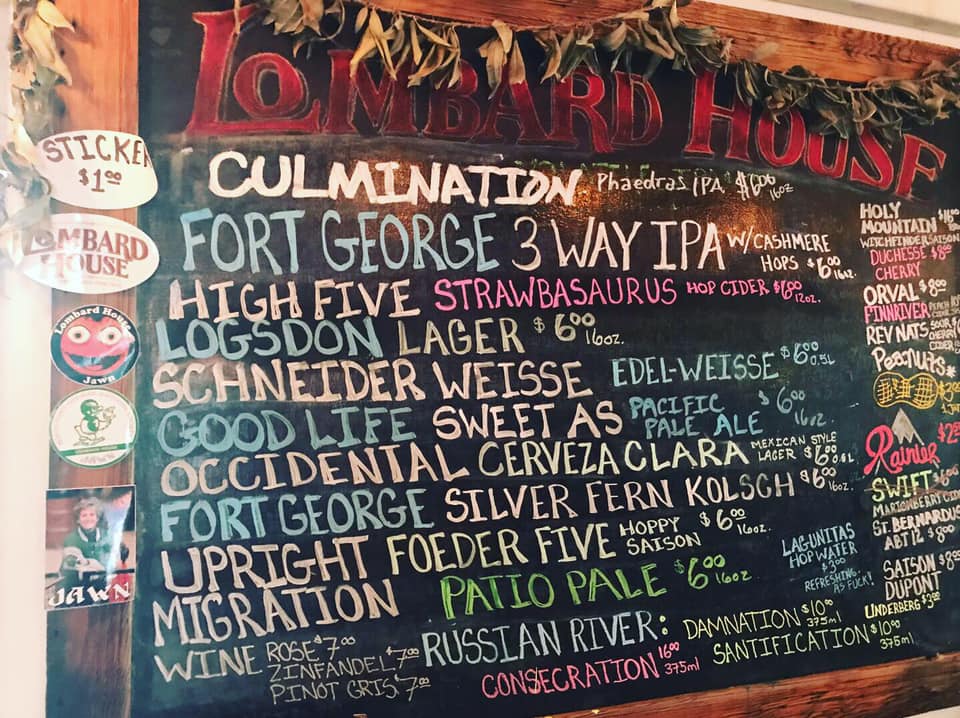 LOMBARD HOUSE
STICKER
$1.00
LOMBARD
HOUSE
Lombard House
Jawn
JAWN
CULMINATION Phaedras IPA $6.00 16oz
FORT GEORGE 3 WAY IPA W/CASHMERE HOPS $6.00 16oz.
HIGH FIVE STRAWBASAURUS HOP CIDER $6.00 12oz.
LOGSDON LAGER $6.00 16oz.
SCHNEIDER WEISSE EDEL-WEISSE $6.00 0.5L
GOOD LIFE SWEET AS PACIFIC PALE ALE $6.00 16oz.
OCCIDENTAL CERVEZA CLARA MEXICAN STYLE LAGER $6.00
FORT GEORGE SILVER FERN KOLSCH $6.00 16oz.
UPRIGHT FOEDER FIVE HOPPY SAISON $6.00 16oz.
MIGRATION PATIO PALE $6.00 16oz.
WINE ROSE $7.00
ZINFANDEL $7.00
PINOT GRIS 7.00
RUSSIAN RIVER: DAMNATION $10.00 375ml
CONSECRATION 16.00 375ml
SANTIFICATION $10.00 375ml
LAGUNITAS
HOP WATER
$3.00
REFRESHING-
AS FUCK!
HOLY
MOUNTAIN
WITCHFINDER SAISON
DUCHESSE $8.00
CHERRY
ORVAL $8.00
FINNRIVER PEACH
REV NATS SOUR CHERRY CIDER
PEANUTS*
Rainier
SWIFT $6.00
MARIONBERRY
ST. BERNARDUS
ABT 12 $8.00
SAISON $8.00
DUPONT
UNDERBERG $3.00